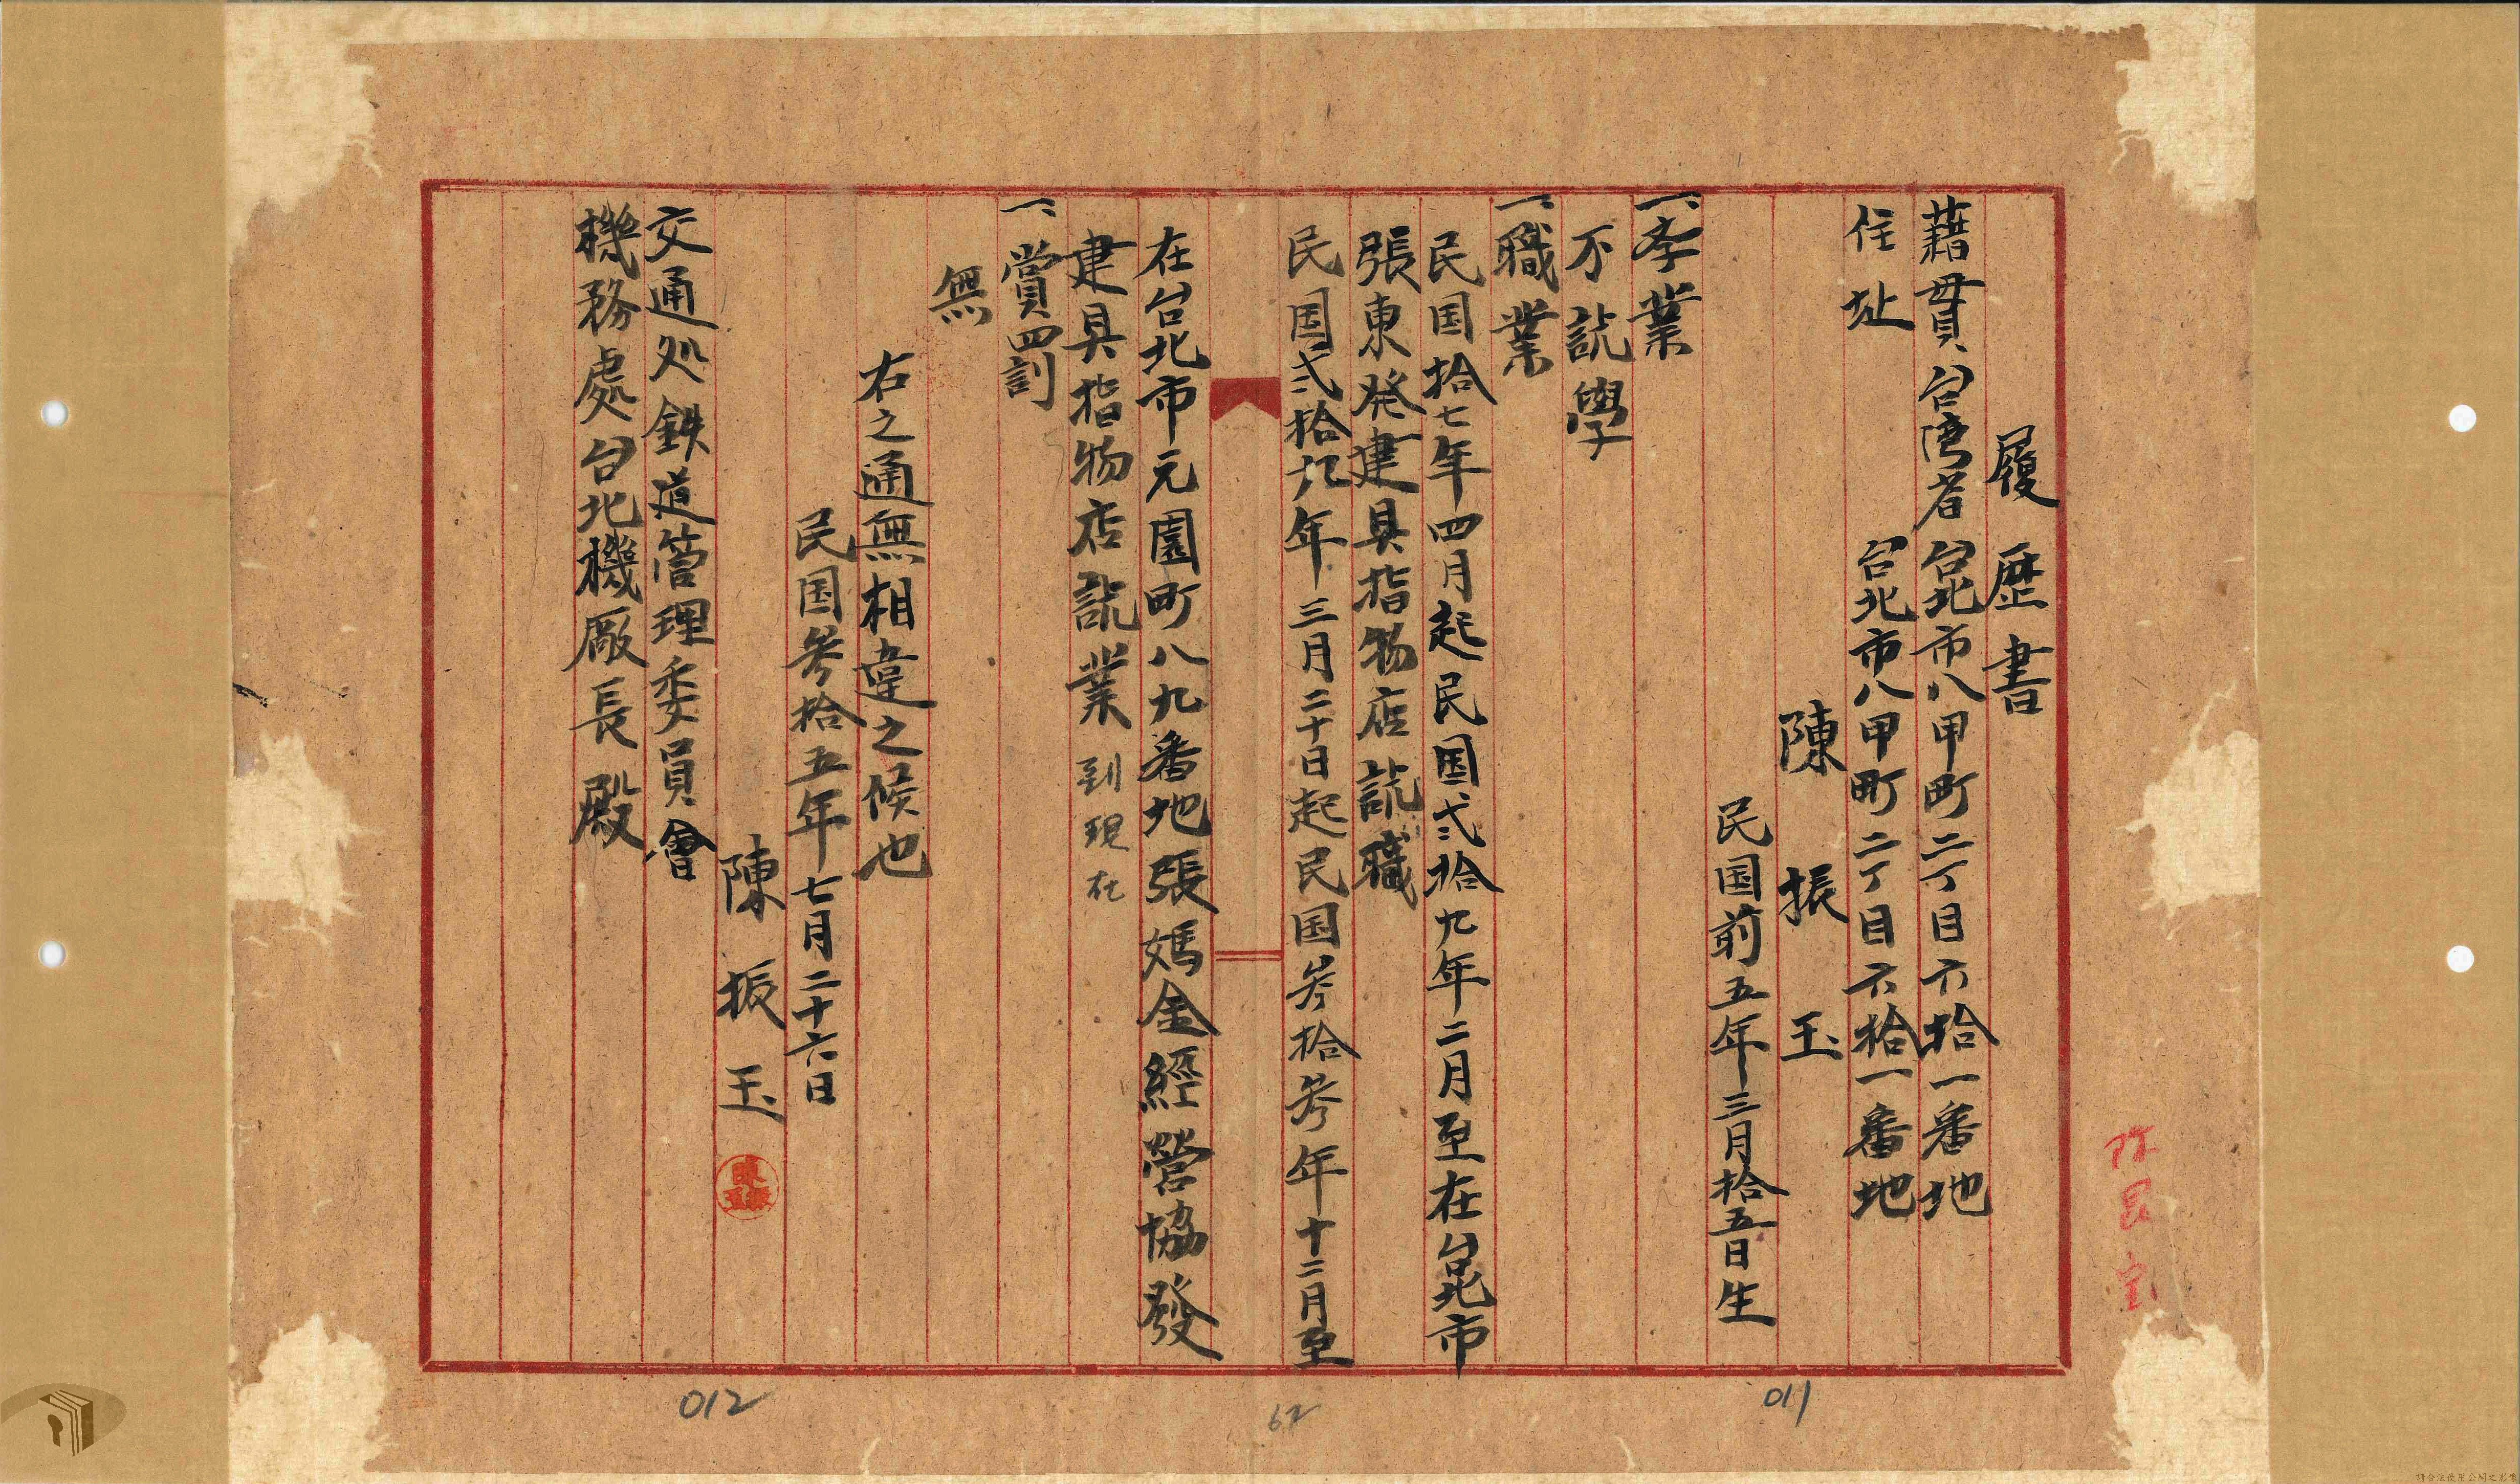 履歴書
藉貫 台湾省台北市八甲町二丁目六拾一番地
住址 台北市八甲町二丁目六拾一番地
陳振玉
民国前五年三月拾五日生
一、斈業
不就學
一、職業
民国拾七年四月起民国弍拾九年二月至在台北市
張東発建具指物店就職
民国弍拾九年三月二十日起民国参拾参年十二月至
在台北市元園町八九番地張媽金經營協發
建具指物店就業到現在
一、賞罰
無
右之通無相違之候也
民国参拾五年七月二十六日
陳振玉
交通処鉄道管理委員會
機務處台北機廠長殿
011
62
012
請合法使用公開之影像